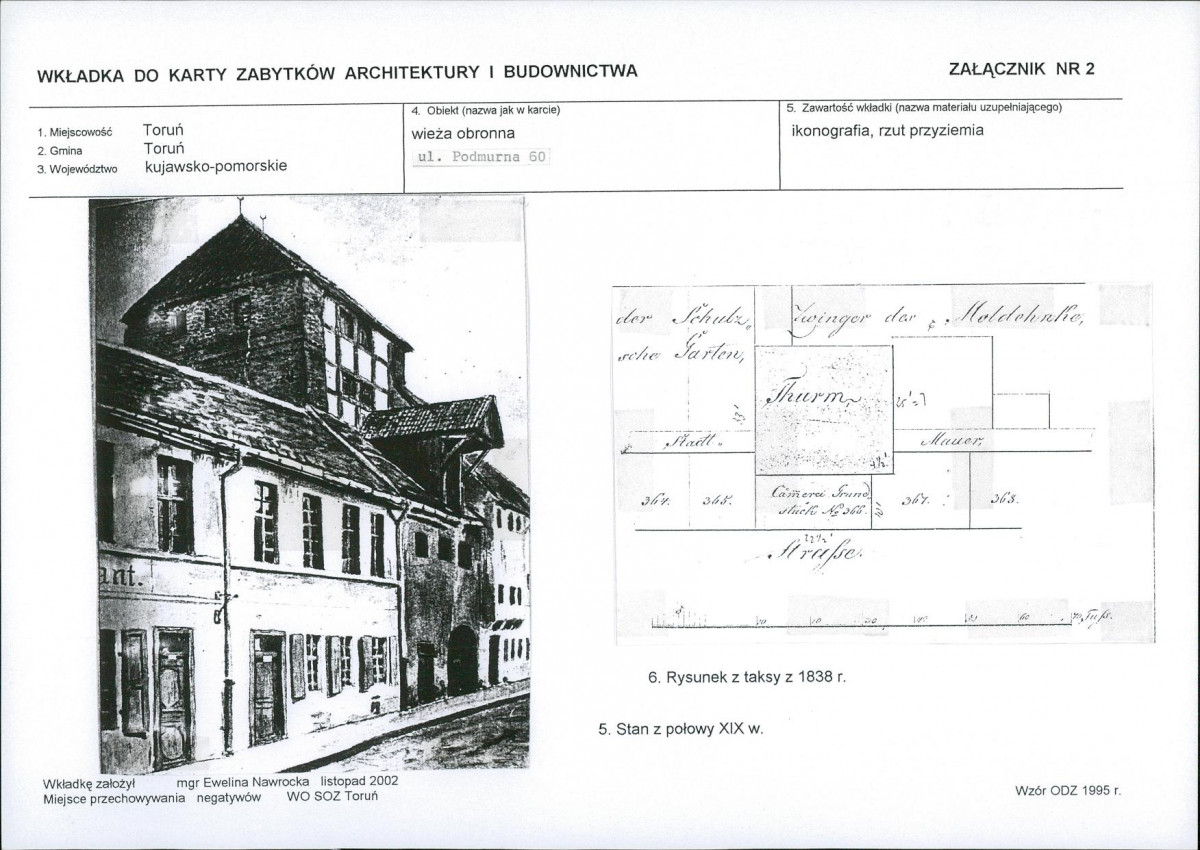 WKŁADKA DO KARTY ZABYTKÓW ARCHITEKTURY I BUDOWNICTWA
ZAŁĄCZNIK NR 2
1. Miejscowość Toruń
2. Gmina Toruń
3. Województwo kujawsko-pomorskie
4. Obiekt (nazwa jak w karcie)
wieża obronna
ul. Podmurna 60
5. Zawartość wkładki (nazwa materiału uzupełniającego)
ikonografia, rzut przyziemia
ant.
der Schulz„
sche Garten,
Zwinger der Moldehnke,
Thurm,
33'
Stadt„
Mauer,
364.
365.
Cämerei Grund
stück No 366.
367.
368.
22½'
Straße.
60
Fuß.
6. Rysunek z taksy z 1838 r.
5. Stan z połowy XIX w.
Wkładkę założył mgr Ewelina Nawrocka listopad 2002
Miejsce przechowywania negatywów WO SOZ Toruń
Wzór ODZ 1995 r.